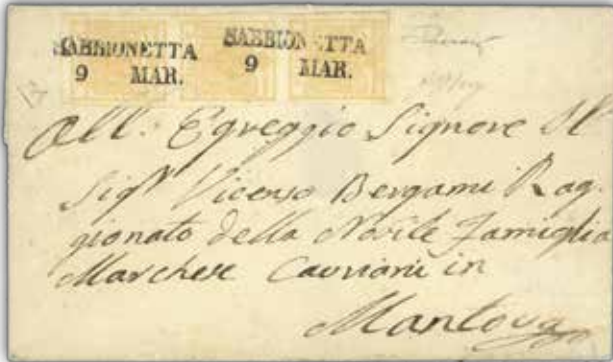 SABBIONETTA SABBIONETTA
9 MAR. 9 MAR.
All. Egreggio Signore Il
Sigr Vicenso Bergami Rag-
gionato della Nobile Famiglia
Marchese Cavriani in
Mantova